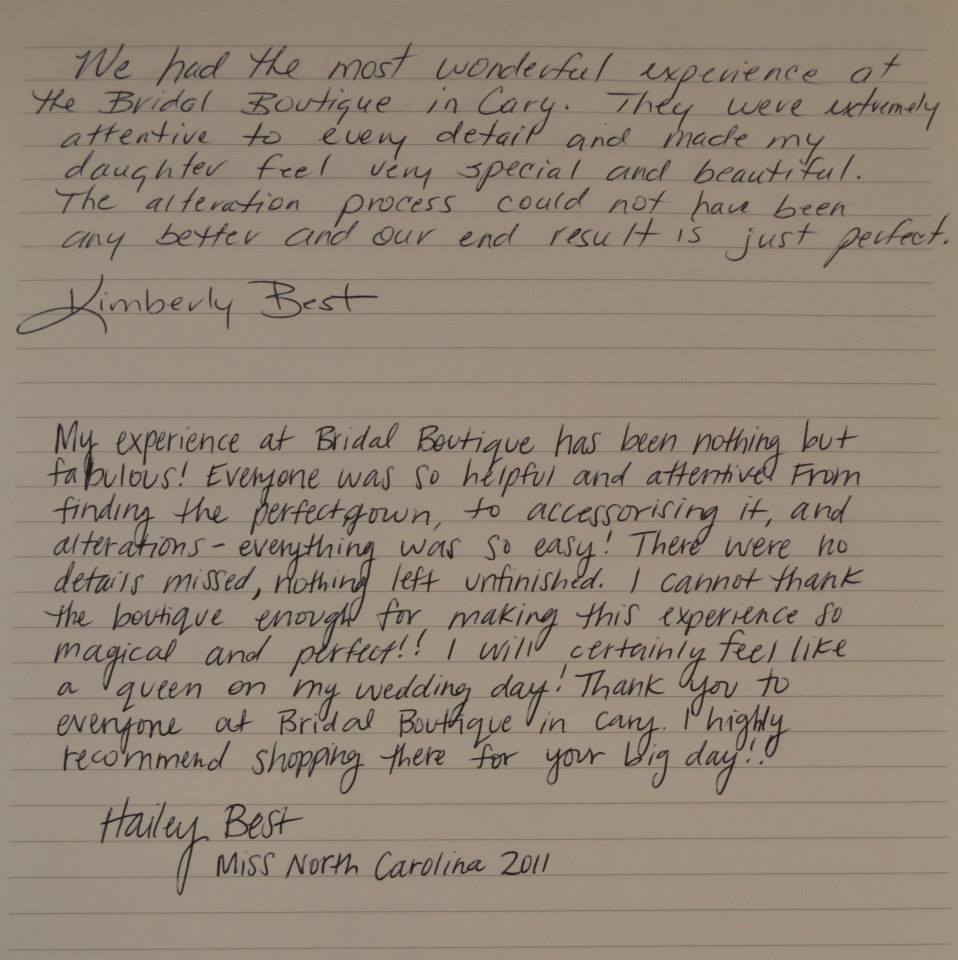 We had the most wonderful experience at
the Bridal Boutique in Cary. They were extremely
attentive to every detail and made my
daughter feel very special and beautiful.
The alteration process could not have been
any better and our end result is just perfect.
Kimberly Best
My experience at Bridal Boutique has been nothing but
fabulous! Everyone was so helpful and attentive! From
finding the perfect gown, to accessorising it, and
alterations - everything was so easy! There were no
details missed, nothing left unfinished. I cannot thank
the boutique enough for making this experience so
magical and perfect!! I will certainly feel like
a queen on my wedding day! Thank you to
everyone at Bridal Boutique in Cary. I highly
recommend shopping there for your big day!!
Hailey Best
Miss North Carolina 2011